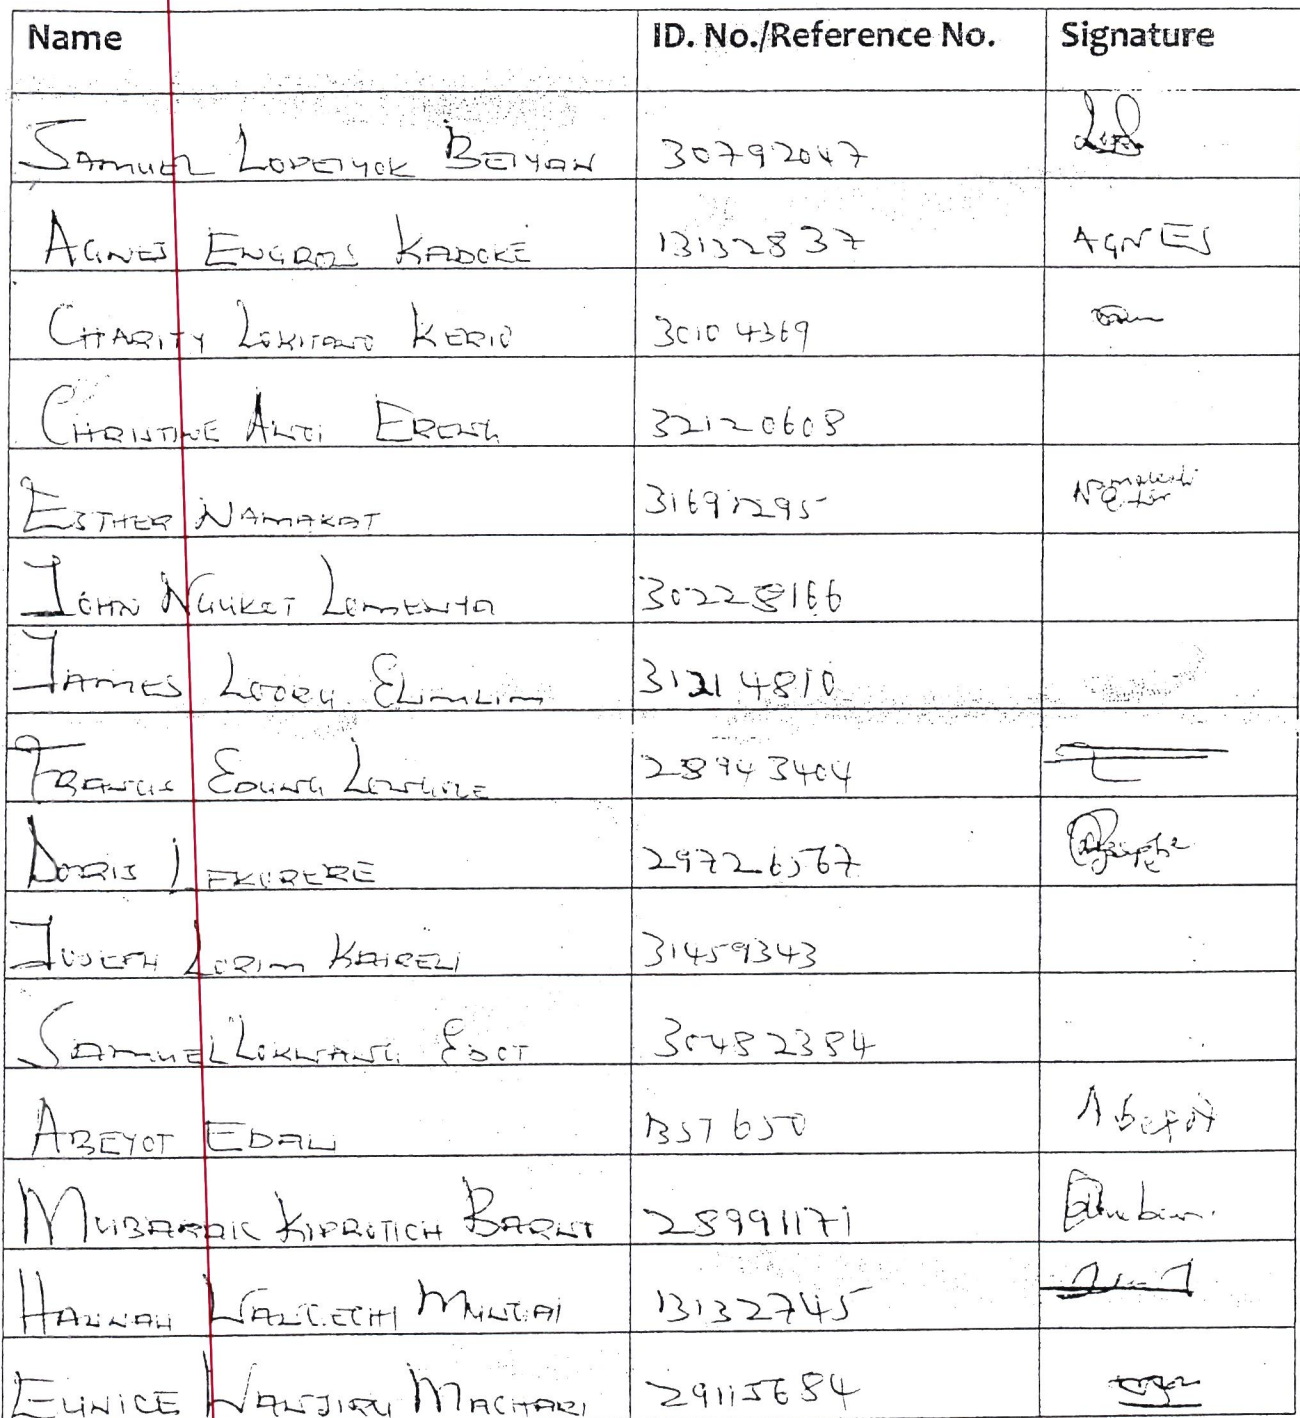 Name ID. No./Reference No. Signature
SAMUEL LOPEIYOK BEIYAN 30792047
AGNES ENGROS KADOKE 13132837 AGNES
CHARITY LOKITANO KERIO 30104369
CHRISTINE 32120608
ESTHER NAMAKAT 31691295
JOHN LOMENYA 30228166
JAMES LOORU ELIMLIM 31214810
FRANCIS EDUNG 28943404
DORIS LEKURERE 29726567
JOSEPH LORIM KAIRELI 31459343
SAMUEL LOKWANG EDOT 30482384
ABEYOT EDAU 1357650
MUBARAK KIPROTICH 28991171
HANNAH MUNGAI 13132745
EUNICE WANJIRU MACHARI 29115684